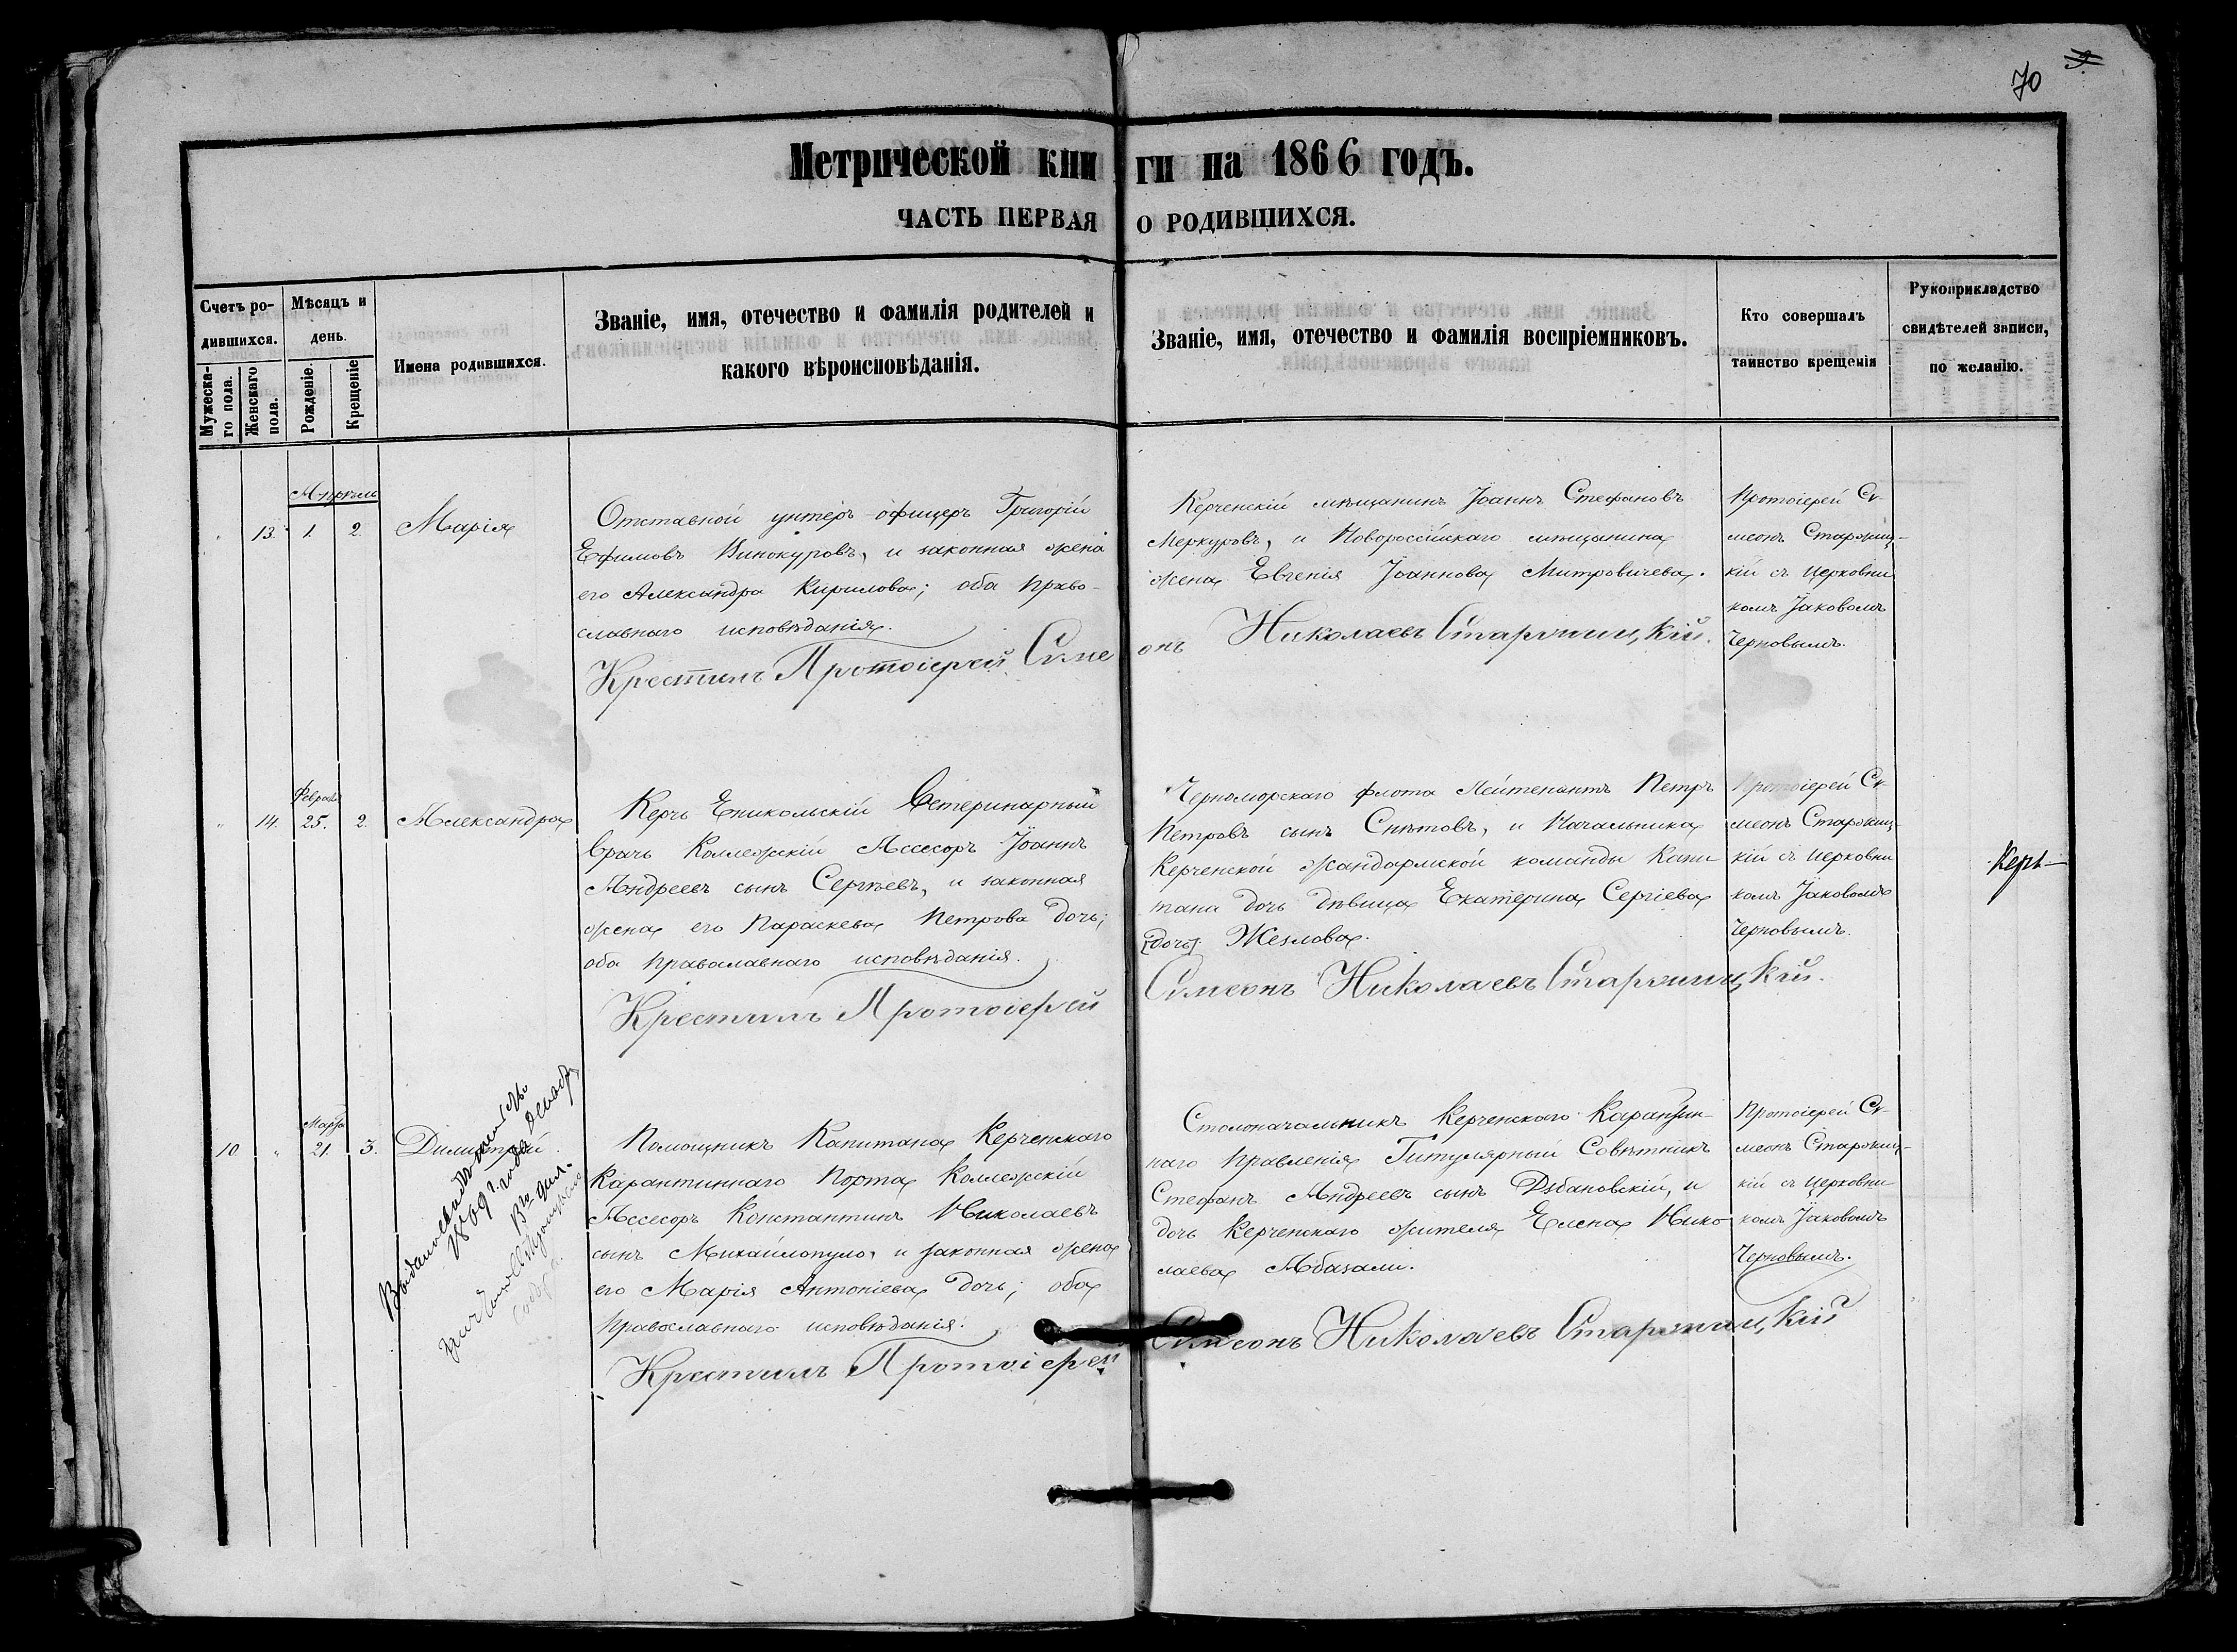 70
Метрической книги на 1866 годъ.
ЧАСТЬ ПЕРВАЯ О РОДИВШИХСЯ.
Счетъ ро-
дившихся.
Мужеска-
го пола.
Женскаго
пола.
Мѣсяцъ и
день.
Рожденіе.
Крещеніе
Имена родившихся.
Званіе, имя, отечество и фамилія родителей и
какого вѣроисповѣданія.
Званіе, имя, отечество и фамилія воспріемниковъ.
Кто совершалъ
таинство крещенія
Рукоприкладство
свидѣтелей записи,
по желанію.
Апрѣль
13. 1. 2. Марія
Отставной унтеръ-офицеръ Григорій
Ефимовъ Винокуровъ, и законная жена
его Александра Кирилова; оба право-
славнаго исповѣданія.
Керченскій мѣщанинъ Іоаннъ Стефановъ
Меркуровъ, и Новороссійскаго мѣщанина
жена Евгенія Іоаннова Митровичева.
Протоіерей Си-
меонъ Старожиц-
кій съ церковни
комъ Іаковомъ
Черновымъ.
Крестилъ Протоіерей Симе
онъ Николаевъ Старожицкій.
Феврал
14. 25. 2. Александра
Керчь Еникольскій Ветеринарный
врачъ Коллежскій Ассесоръ Іоаннъ
Андреевъ сынъ Сергѣевъ, и законная
жена его Параскева Петрова дочь;
оба православнаго исповѣданія.
Черноморскаго флота Лейтенантъ Петръ
Петровъ сынъ Снѣтовъ, и Начальника
Керченской жандармской команды Капи
тана дочь дѣвица Екатерина Сергіева
[дочь] Жезлова.
Протоіерей Си-
меонъ Старожиц-
кій съ церковни
комъ Іаковомъ
Черновымъ.
Керч-
Крестилъ Протоіерей
Симеонъ Николаевъ Старожицкій.
Марта
10 21. 3. Димитрій.
Помощникъ Капитана Керченскаго
Карантиннаго Порта Коллежскій
Ассесоръ Константинъ Николаевъ
сынъ Михайлопуло, и законная жена
его Марія Антоніева дочь; оба
православнаго исповѣданія.
Столоначальникъ Керченскаго Карантин-
наго Правленія Титулярный Совѣтникъ
Стефанъ Андреевъ сынъ Дзбановскій, и
дочь Керченскаго жителя Елена Нико
лаева Абазали.
Протоіерей Си-
меонъ Старожиц-
кій съ церковни
комъ Іаковомъ
Черновымъ.
Крестилъ Протоіерей
Симеонъ Николаевъ Старожицкій